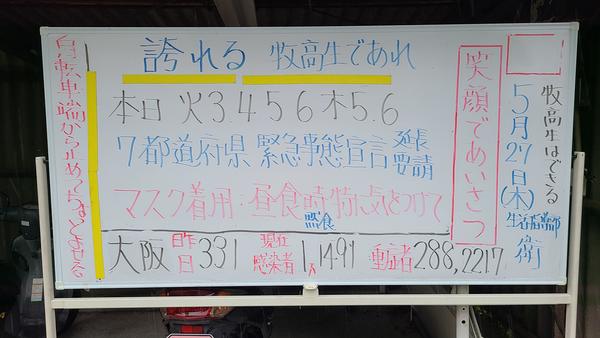 誇れる 牧高生であれ
本日 火3.4 5 6 木5.6
7都道府県 緊急事態宣言 延長要請
マスク着用:昼食時特に気をつけて
黙食
大阪 昨日 331 現在感染者 1万1491 重症者 288,2217
笑顔であいさつ
牧高生はできる
5月27日(木)
生活指導部
自転車端から止めて